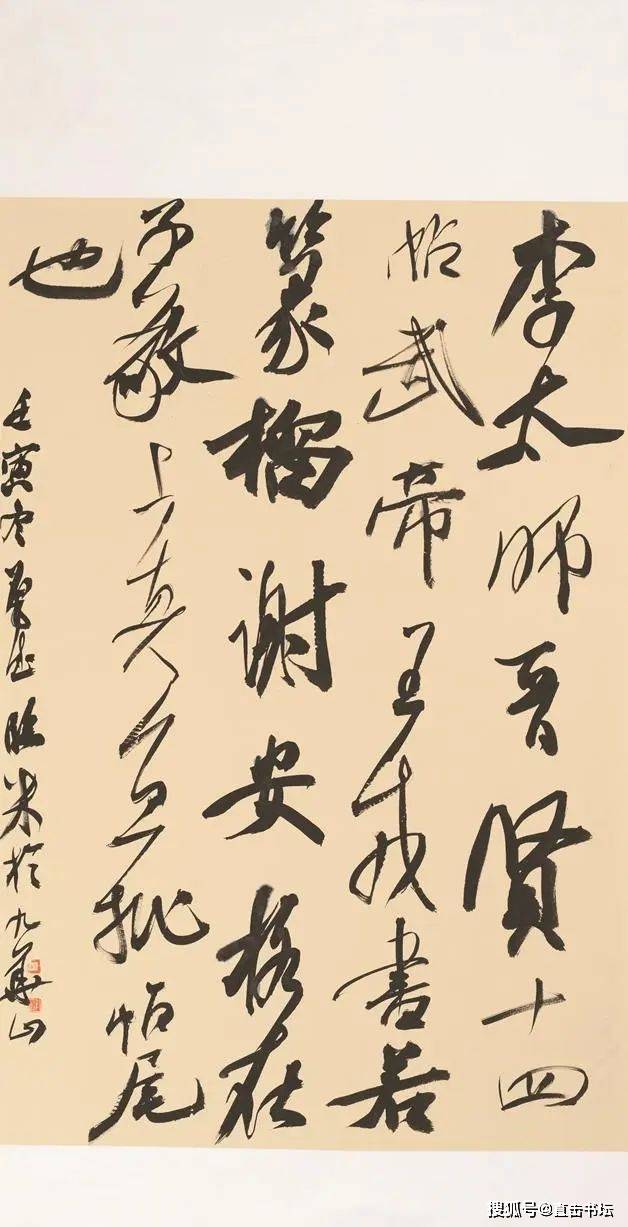 李太師晋賢十四
帖武帝王戎書若
篆籀謝安格在
子敬上真宜批帖尾
也
壬寅冬臨米於九華山
搜狐号@直击书坛